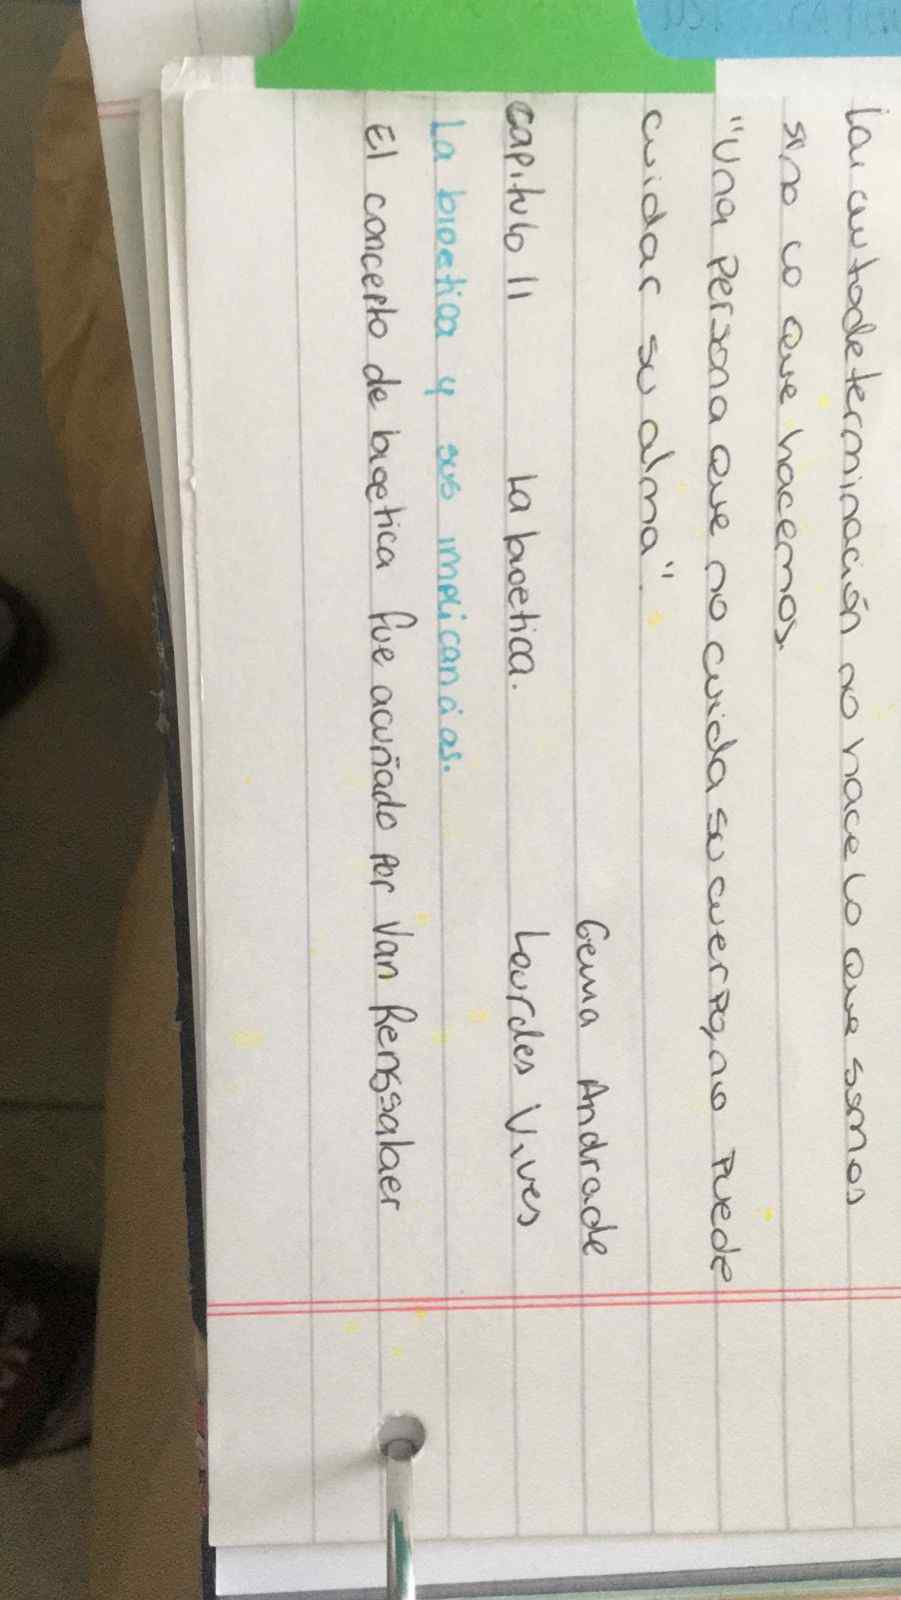 La autodeterminación no hace lo que somos
sino lo que hacemos.
"Una persona que no cuida su cuerpo, no puede
cuidar su alma".
Gema Andrade
Capitulo II La bioetica. Lourdes Vives
La bioetica y sus implicancias.
El concepto de bioetica fue acuñado por Van Renssalaer